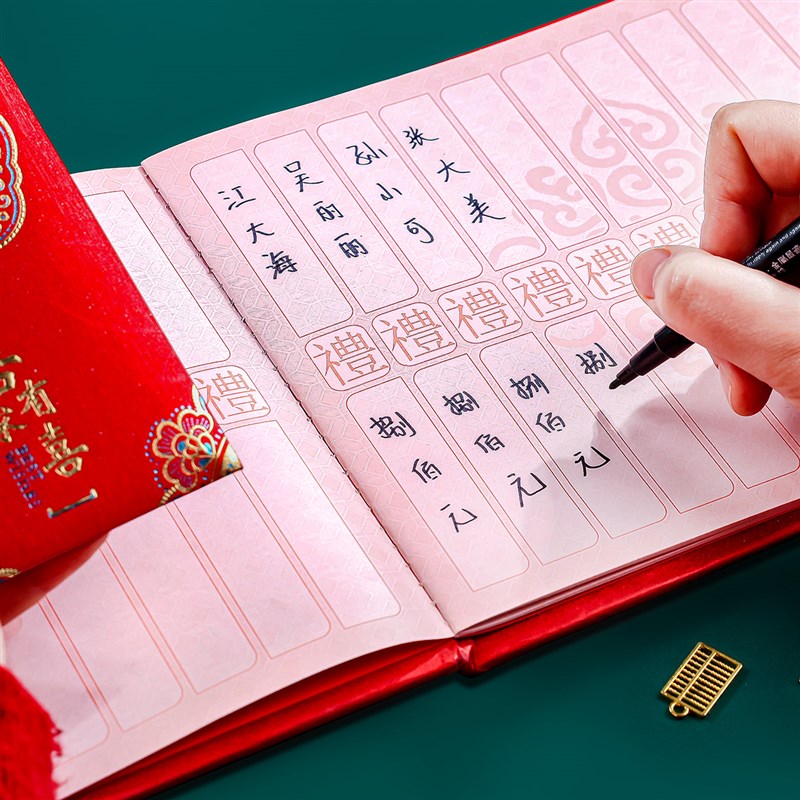 有喜
BEST
WISHES
禮
江大海
吴丽丽
孙小可
张大美
禮 禮 禮 禮 禮 禮
捌佰元
捌佰元
捌佰元
捌